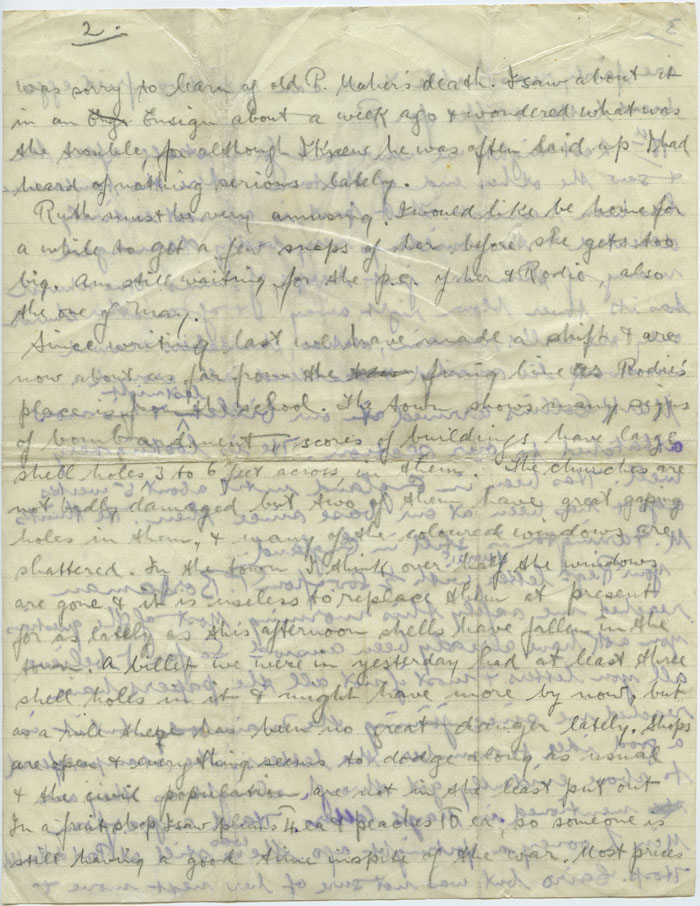 2.
was sorry to learn of old P. Maher's death. I saw about it
in an Ensign about a week ago & wondered what was
the trouble, for although I knew he was often laid up I had
heard of nothing serious lately.
Ruth must be very amusing. I would like be home for
a while to get a few snaps of her before she gets too
big. Am still waiting for the p.c. of her & Rodie, also
the one of May.
Since writing last we have made a shift & are
now about as far from the firing line as Rodie's
place is from school. The town shows many signs
of bombardment scores of buildings have large
shell holes 3 to 6 feet across in them. The churches are
not badly damaged but two of them have great gaping
holes in them, & many of the coloured windows are
shattered. In the town I think over half the windows
are gone & it is useless to replace them at present
for as lately as this afternoon shells have fallen in the
town. A billet we were in yesterday had at least three
shell holes in it & might have more by now, but
as a rule there has been no great danger lately. Shops
are open & everything seems to going along as usual
& the civil population are not in the least put out
In a fruit shop I saw plums ea & peaches ea, so someone is
still having a good time inspite of the war. Most prices